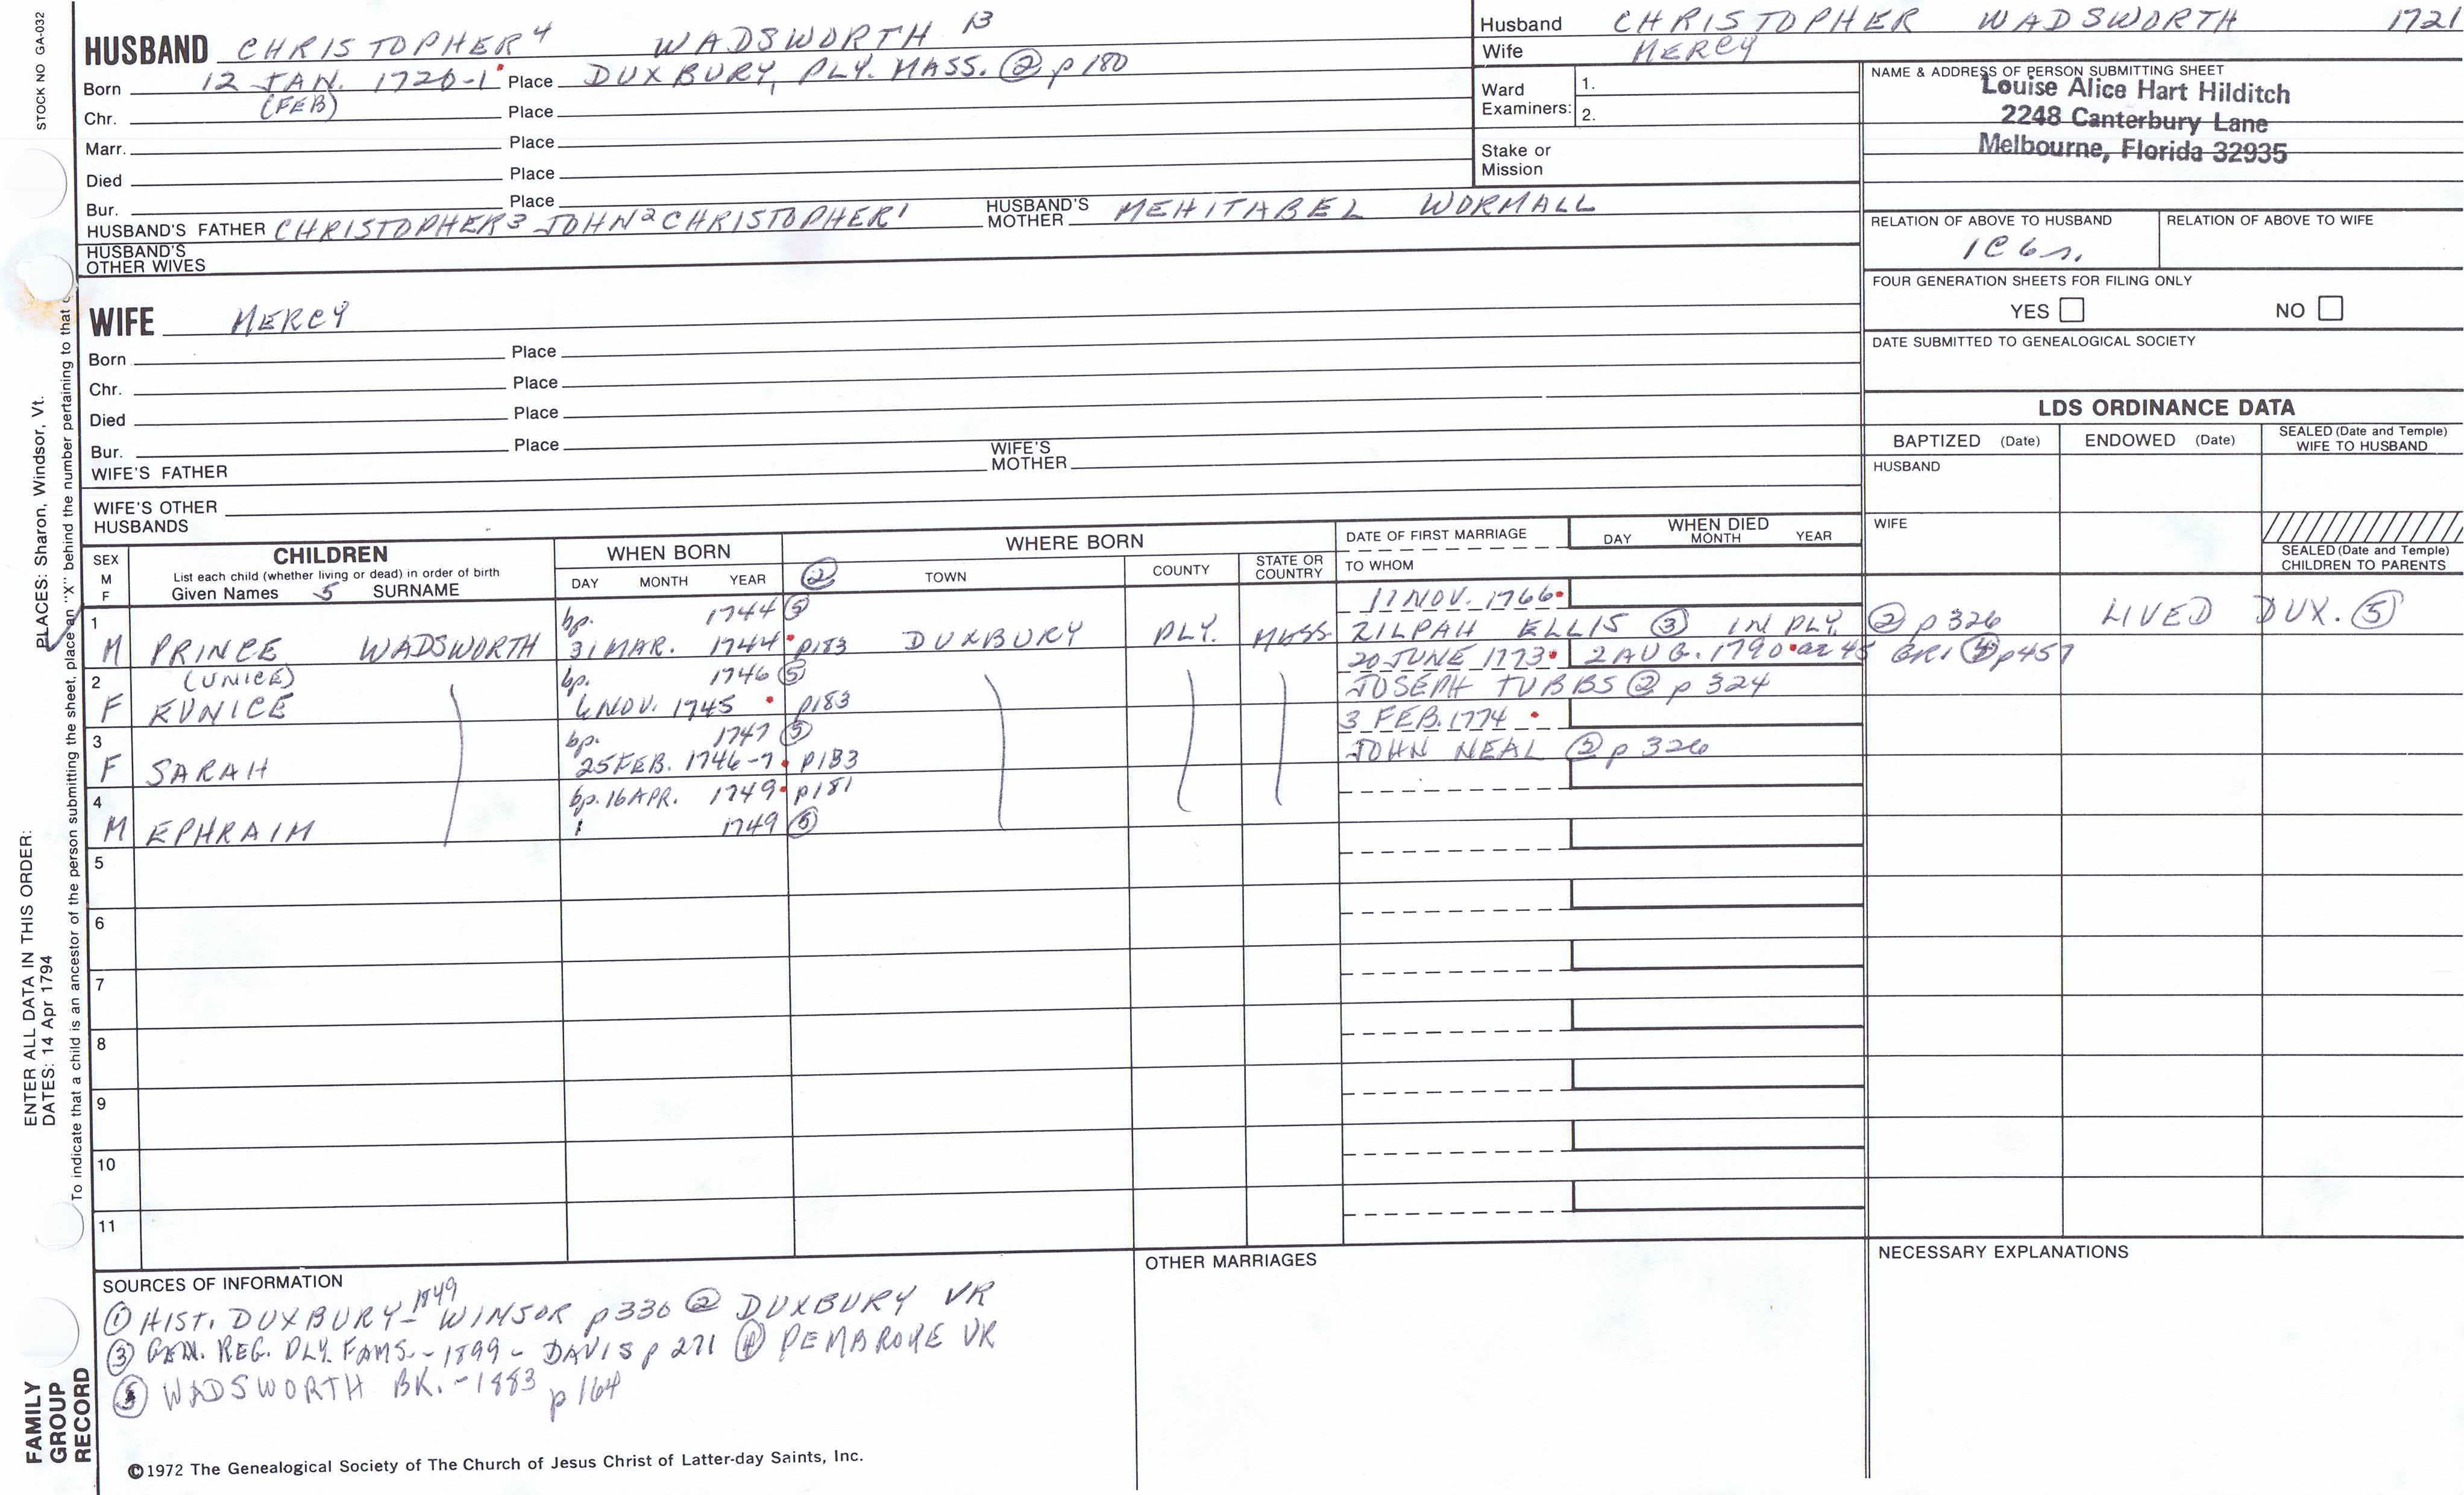 STOCK NO GA-032
HUSBAND CHRISTOPHER⁴ WADSWORTH B
Born 12 JAN. 1720-1 Place DUXBURY, PLY. MASS. ② p 180
(FEB)
Chr. Place
Marr. Place
Died Place
Bur. Place
HUSBAND'S FATHER CHRISTOPHER³ JOHN² CHRISTOPHER¹ HUSBAND'S MOTHER MEHITABEL WORMALL
HUSBAND'S
OTHER WIVES
Husband CHRISTOPHER WADSWORTH 1721
Wife MERCY
Ward
Examiners:
1.
2.
Stake or
Mission
NAME & ADDRESS OF PERSON SUBMITTING SHEET
Louise Alice Hart Hilditch
2248 Canterbury Lane
Melbourne, Florida 32935
RELATION OF ABOVE TO HUSBAND RELATION OF ABOVE TO WIFE
1C6
FOUR GENERATION SHEETS FOR FILING ONLY
YES NO
DATE SUBMITTED TO GENEALOGICAL SOCIETY
WIFE MERCY
Born Place
Chr. Place
Died Place
Bur. Place
WIFE'S FATHER WIFE'S MOTHER
WIFE'S OTHER
HUSBANDS
LDS ORDINANCE DATA
BAPTIZED (Date) ENDOWED (Date) SEALED (Date and Temple)
WIFE TO HUSBAND
HUSBAND
WIFE
SEALED (Date and Temple)
CHILDREN TO PARENTS
SEX
M
F
CHILDREN
List each child (whether living or dead) in order of birth
Given Names 5 SURNAME
WHEN BORN
DAY MONTH YEAR ②
WHERE BORN
TOWN COUNTY STATE OR COUNTRY
DATE OF FIRST MARRIAGE
TO WHOM
WHEN DIED
DAY MONTH YEAR
1 bp. 1744 ⑤ 17 NOV. 1766
M PRINCE WADSWORTH 31 MAR. 1744 p183 DUXBURY PLY. MASS ZILPAH ELLIS ③ IN PLY. ② p 326 LIVED DUX. ⑤
2 (UNICE) bp. 1746 ⑤ 20 JUNE 1773 2 AUG. 1790 ae 45 GR1 ④ p457
F EUNICE 6 NOV. 1745 p183 JOSEPH TUBBS ② p 324
3 bp. 1747 ⑤ 3 FEB. 1774
F SARAH 25 FEB. 1746-7 p183 JOHN NEAL ② p 326
4 bp. 16 APR. 1749 p181
M EPHRAIM 1749 ⑤
5
6
7
8
9
10
11
SOURCES OF INFORMATION
① HIST. DUXBURY - 1849 WINSOR p 330 ② DUXBURY VR
③ GEN. REG. PLY. FAMS. - 1899 - DAVIS p 271 ④ PEMBROKE VR
⑤ WADSWORTH BK. - 1883 p 164
OTHER MARRIAGES
NECESSARY EXPLANATIONS
©1972 The Genealogical Society of The Church of Jesus Christ of Latter-day Saints, Inc.
PLACES: Sharon, Windsor, Vt.
ENTER ALL DATA IN THIS ORDER:
DATES: 14 Apr 1794
To indicate that a child is an ancestor of the person submitting the sheet, place an "X" behind the number pertaining to that
FAMILY
GROUP
RECORD